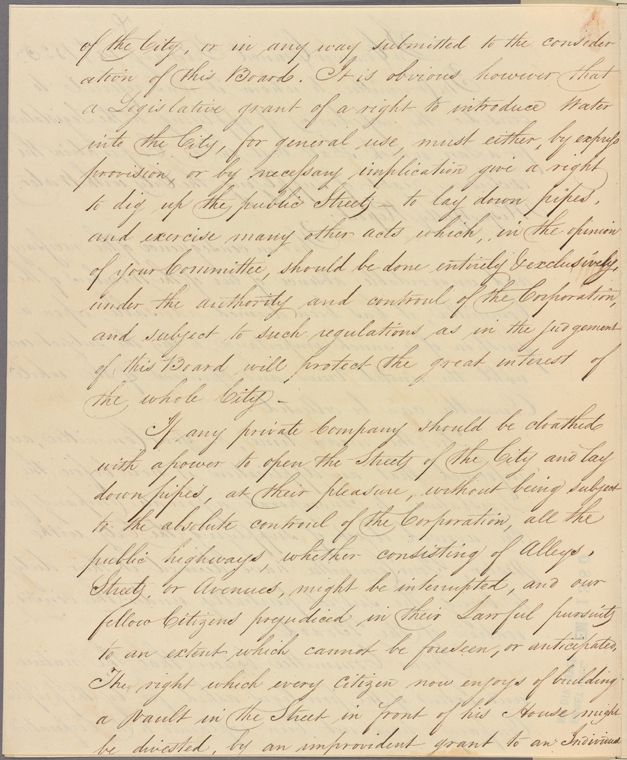 of the City, or in any way submitted to the consider
ation of this Board. It is obvious however that
a Legislative grant of a right to introduce Water
into the City, for general use, must either, by express
provision, or by necessary implication give a right
to dig up the public Streets — to lay down pipes,
and exercise many other acts which, in the opinion
of your Committee, should be done entirely & exclusively,
under the authority and controul of the Corporation,
and subject to such regulations as in the judgement
of this Board will protect the great interest of
the whole City —
If any private Company should be cloathed
with a power to open the Streets of the City and lay
down pipes, at their pleasure, without being subject
to the absolute controul of the Corporation, all the
public highways, whether consisting of Alleys,
Streets, or Avenues, might be interrupted, and our
fellow Citizens prejudiced in their Lawful pursuits
to an extent which cannot be foreseen, or anticipated.
The right which every Citizen now enjoys of building
a Vault in the Street in front of his House might
be divested, by an improvident grant to an Individual